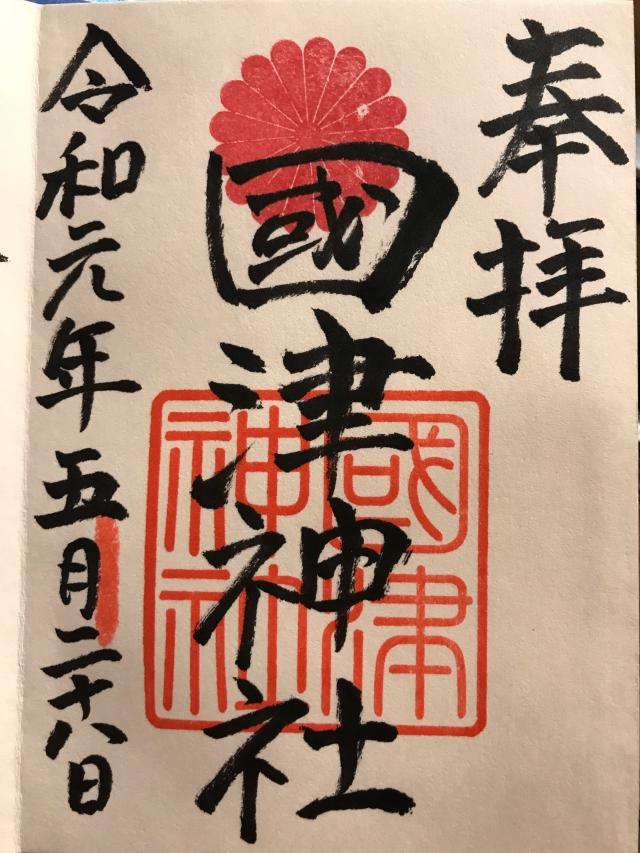 奉拝
國津神社
國津
神社
令和元年五月二十八日